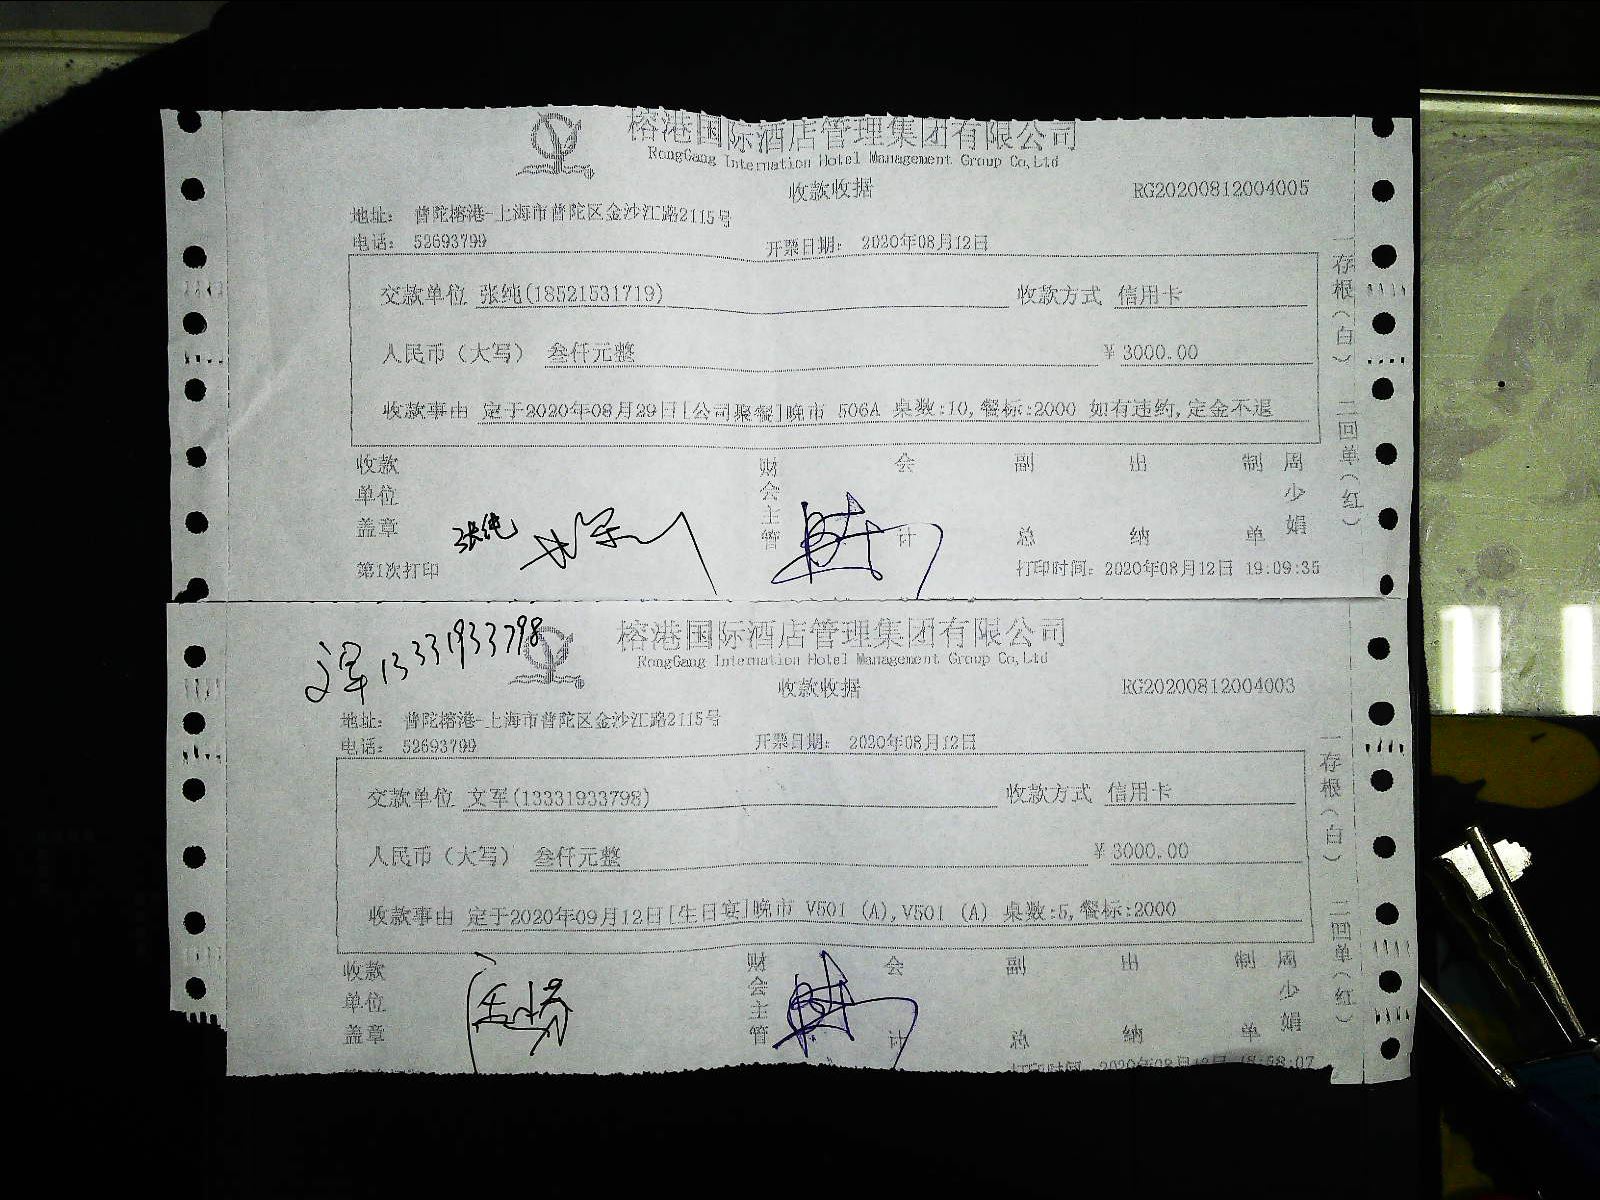 榕港国际酒店管理集团有限公司
RongGang Internation Hotel Management Group Co,Ltd
收款收据 RG20200812004005
地址： 普陀榕港-上海市普陀区金沙江路2115号
电话： 52693799 开票日期： 2020年08月12日
交款单位 张纯(18521531719) 收款方式 信用卡
人民币（大写） 叁仟元整 ￥3000.00
收款事由 定于2020年08月29日[公司聚餐]晚市 506A 桌数:10,餐标:2000 如有违约,定金不退
收款单位盖章 财会主管 会计 副总 出纳 制单 周少娟
张纯
第1次打印 打印时间：2020年08月12日 19:09:35
一存根（白） 二回单（红）
文军 13331933798
榕港国际酒店管理集团有限公司
RongGang Internation Hotel Management Group Co,Ltd
收款收据 RG20200812004003
地址： 普陀榕港-上海市普陀区金沙江路2115号
电话： 52693799 开票日期： 2020年08月12日
交款单位 文军(13331933798) 收款方式 信用卡
人民币（大写） 叁仟元整 ￥3000.00
收款事由 定于2020年09月12日[生日宴]晚市 V501 (A),V501 (A) 桌数:5,餐标:2000
收款单位盖章 财会主管 会计 副总 出纳 制单 周少娟
打印时间 2020年08月12日 18:58:07
一存根（白） 二回单（红）